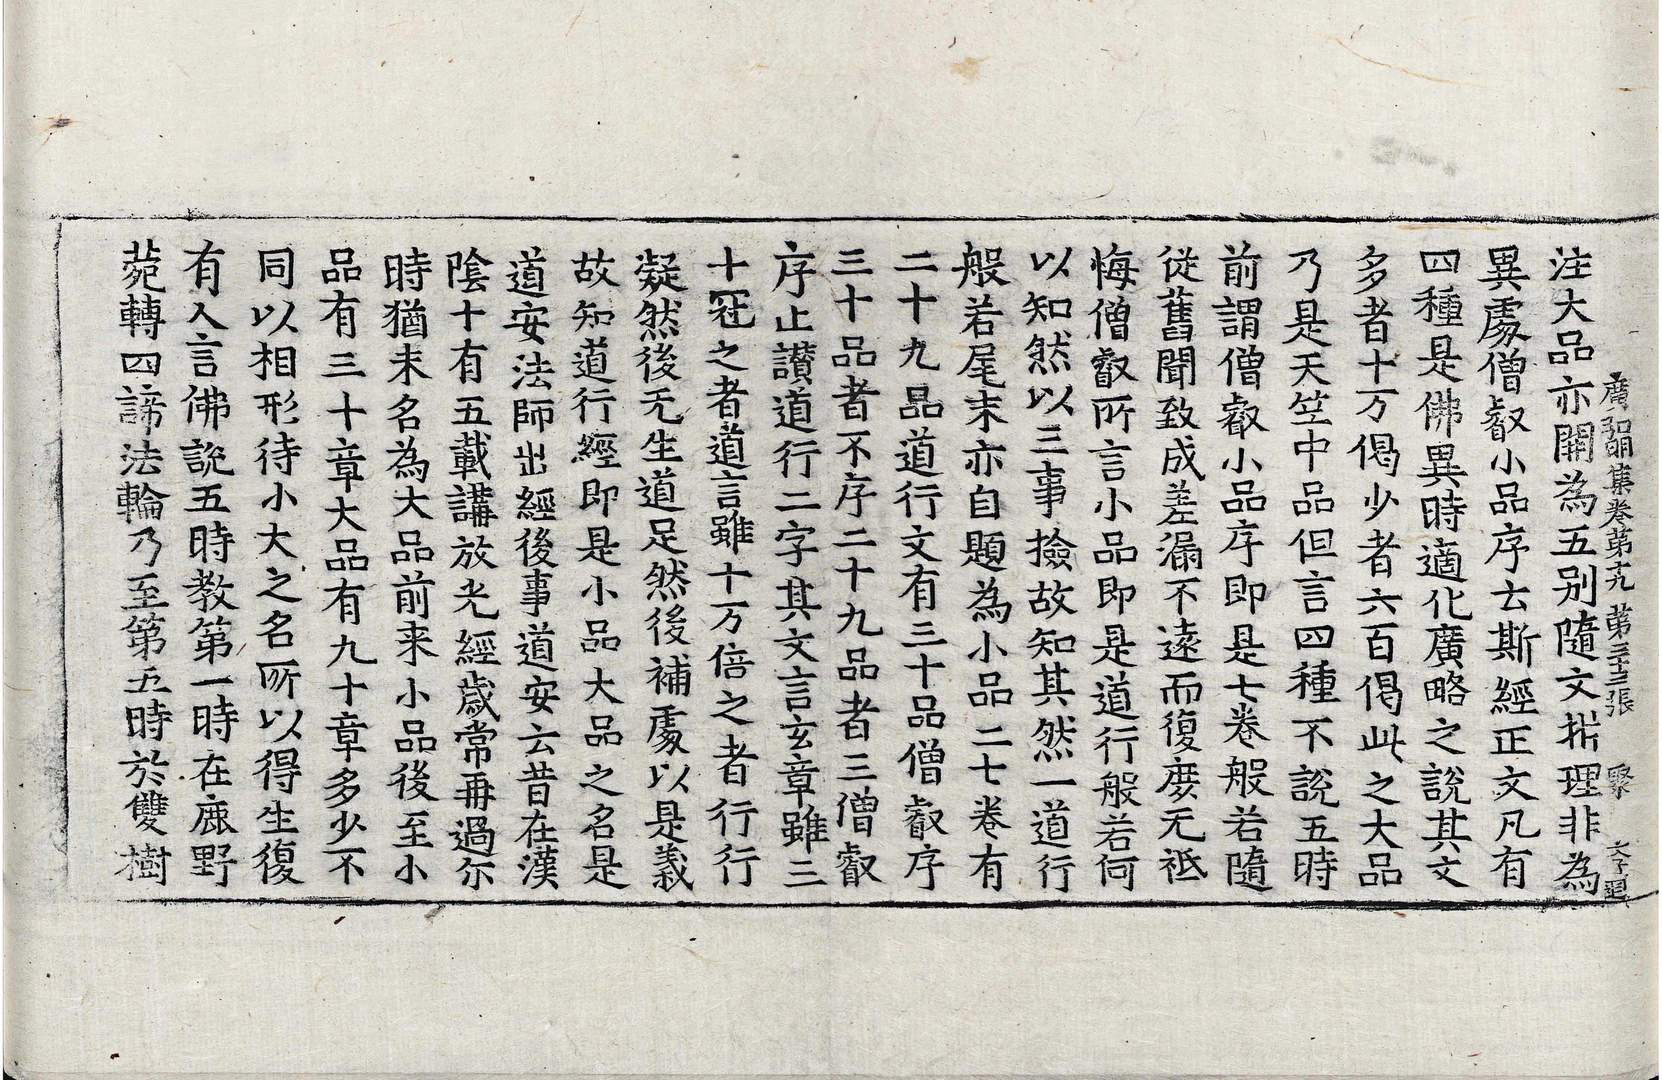 廣弘明集卷第十九 第三十三張 聚
注大品亦開為五别隨文析理非為
異處僧叡小品序云斯經正文凡有
四種是佛異時適化廣略之說其文
多者十万偈少者六百偈此之大品
乃是天竺中品但言四種不說五時
前謂僧叡小品序即是七卷般若隨
從舊聞致成差漏不遠而復庶无祇
悔僧叡所言小品即是道行般若何
以知然以三事撿故知其然一道行
般若尾末亦自題為小品二七卷有
二十九品道行文有三十品僧叡序
三十品者不序二十九品者三僧叡
序止讃道行二字其文言玄章雖三
十冠之者道言雖十万倍之者行行
凝然後无生道足然後補處以是義
故知道行經即是小品大品之名是
道安法師出經後事道安云昔在漢
陰十有五載講放光經歲常再過尓
時猶未名為大品前来小品後至小
品有三十章大品有九十章多少不
同以相形待小大之名所以得生復
有人言佛說五時教第一時在鹿野
菀轉四諦法輪乃至第五時於雙樹